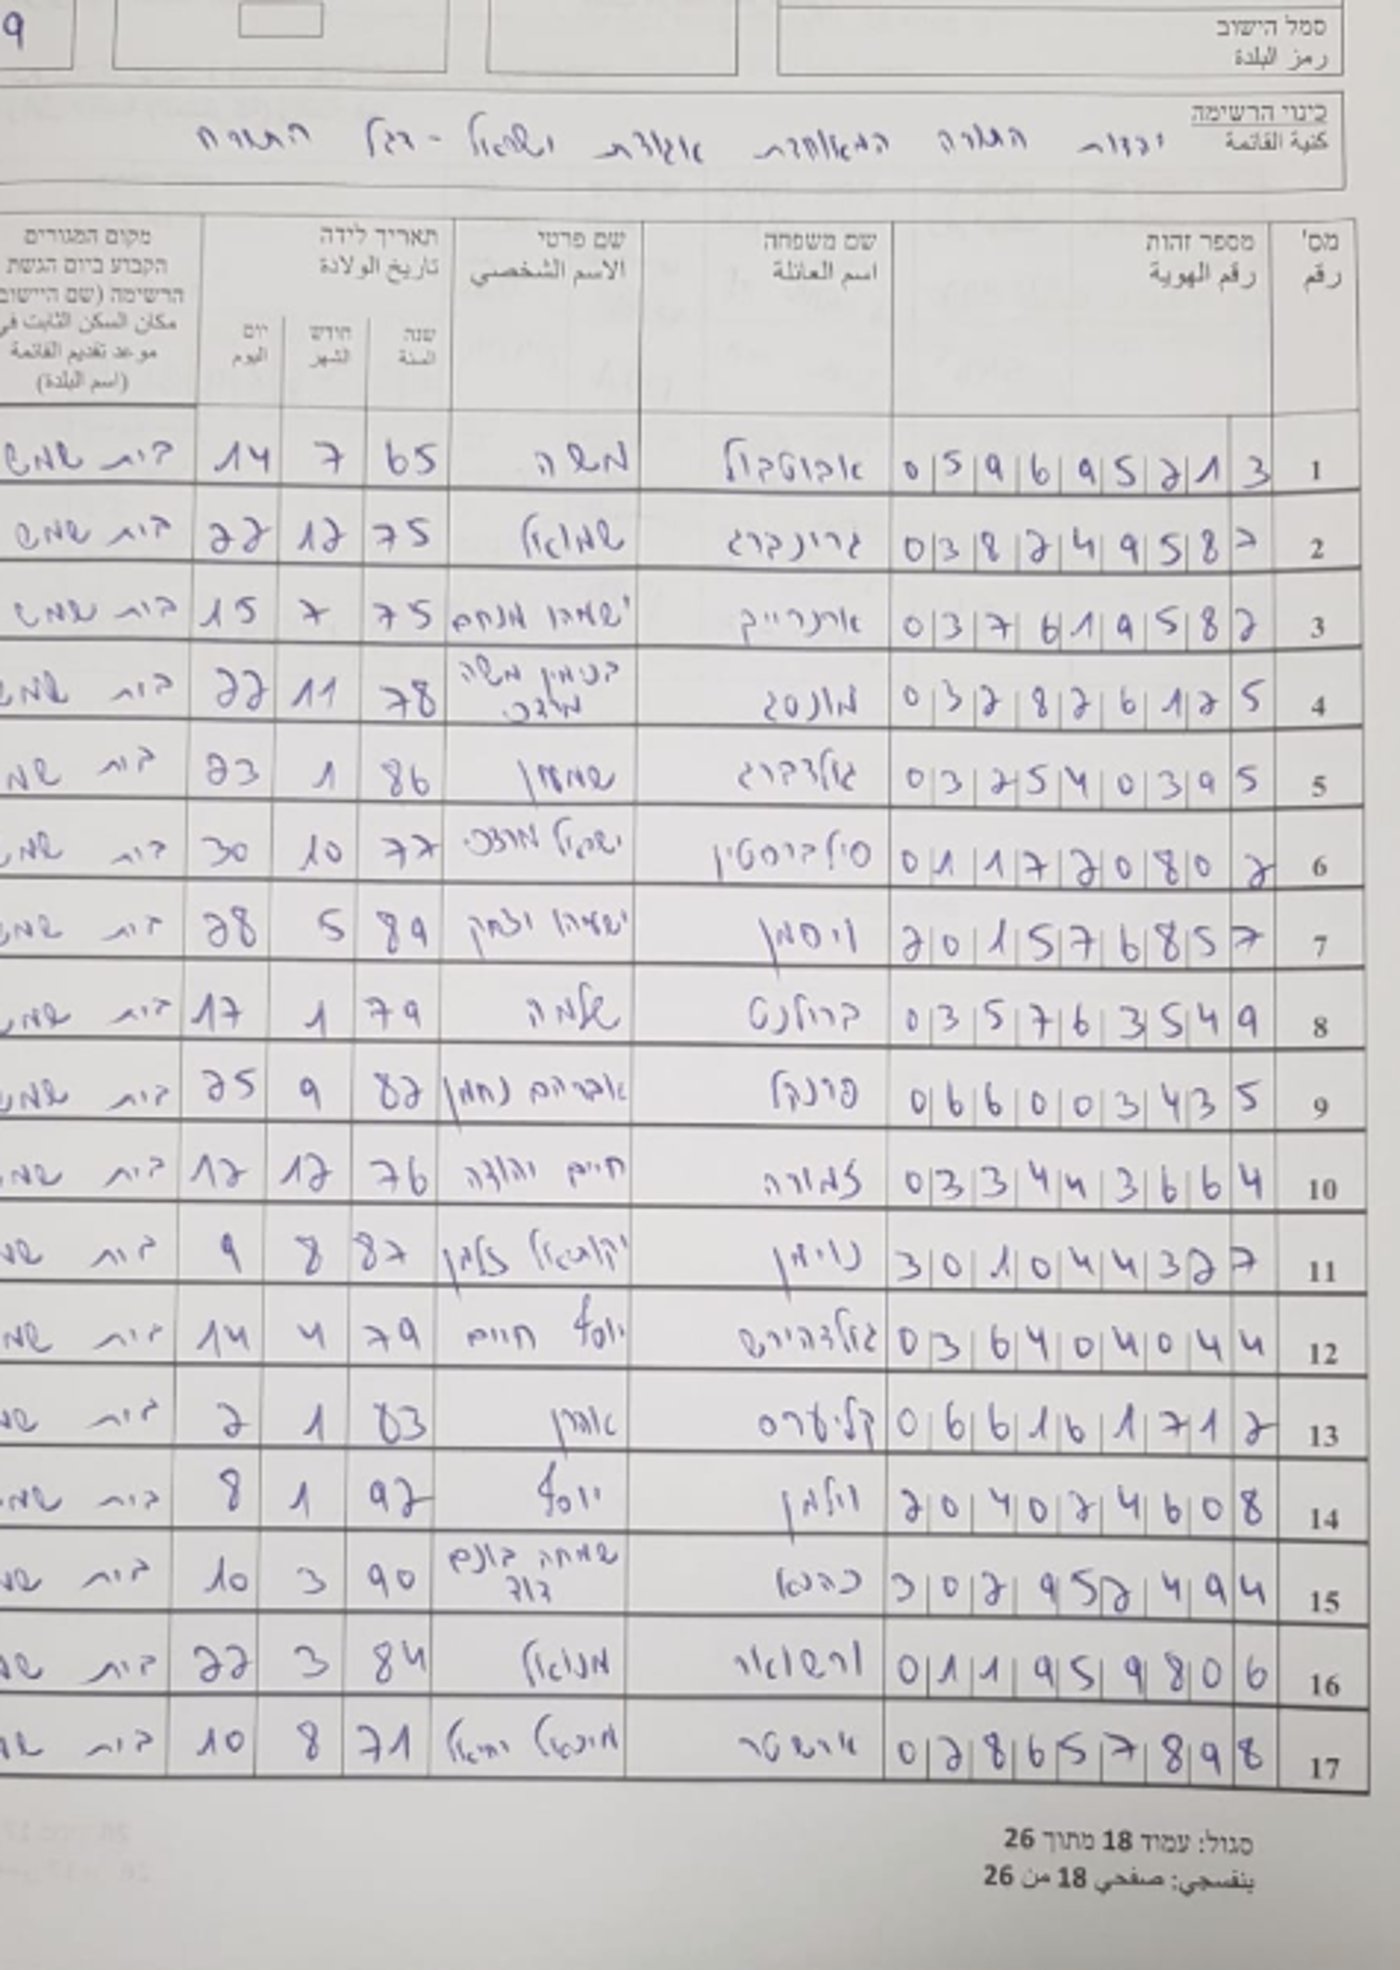 9
סמל הישוב
رمز البلدة
כינוי הרשימה
كنية القائمة
יהדות התורה המאוחדת אגודת ישראל - דגל התורה
מס' מספר זהות שם משפחה שם פרטי תאריך לידה מקום המגורים
رقم رقم الهوية اسم العائلة الاسم الشخصي تاريخ الولادة הקבוע ביום הגשת
הרשימה (שם היישוב
שנה חודש יום مكان السكن الثابت في
السنة الشهر اليوم موعد تقديم القائمة
(اسم البلدة)
1 059695213 אבוטבול משה 65 7 14 בית שמש
2 038249587 גרינברג שמואל 75 12 22 בית שמש
3 037619582 ארנרייך ישעיהו מנחם 75 7 15 בית שמש
4 032826125 מונסג בנימין משה מרדכי 78 11 22 בית שמש
5 032540395 גולדברג שמעון 86 1 23 בית שמ
6 011720802 סילברסטין ישראל מרדכי 77 10 30 בית שמ
7 201576857 ויסמן ישעיהו יצחק 89 5 28 בית שמ
8 035763549 ברולנט שלמה 79 1 17 בית שמש
9 066003435 פרנקל אברהם נחמן 82 9 25 בית שמש
10 033443664 זמורה חיים יהודה 76 12 12 בית שמ
11 301044327 נוימן יקותיאל זלמן 87 8 9 בית שמ
12 036404044 גולדהירש יוסף חיים 79 4 14 בית שמ
13 066161712 קליערס אהרן 83 1 2 בית שמ
14 204024608 וילמן יוסף 92 1 8 בית שמ
15 302952494 כהנא שמחה בונם דוד 90 3 10 בית שמ
16 011959806 ורשואר מנואל 84 3 22 בית שמ
17 028657898 ארשטר מיכאל יחיאל 71 8 10 בית שמ
סגול: עמוד 18 מתוך 26
بنفسجي: صفحي 18 من 26